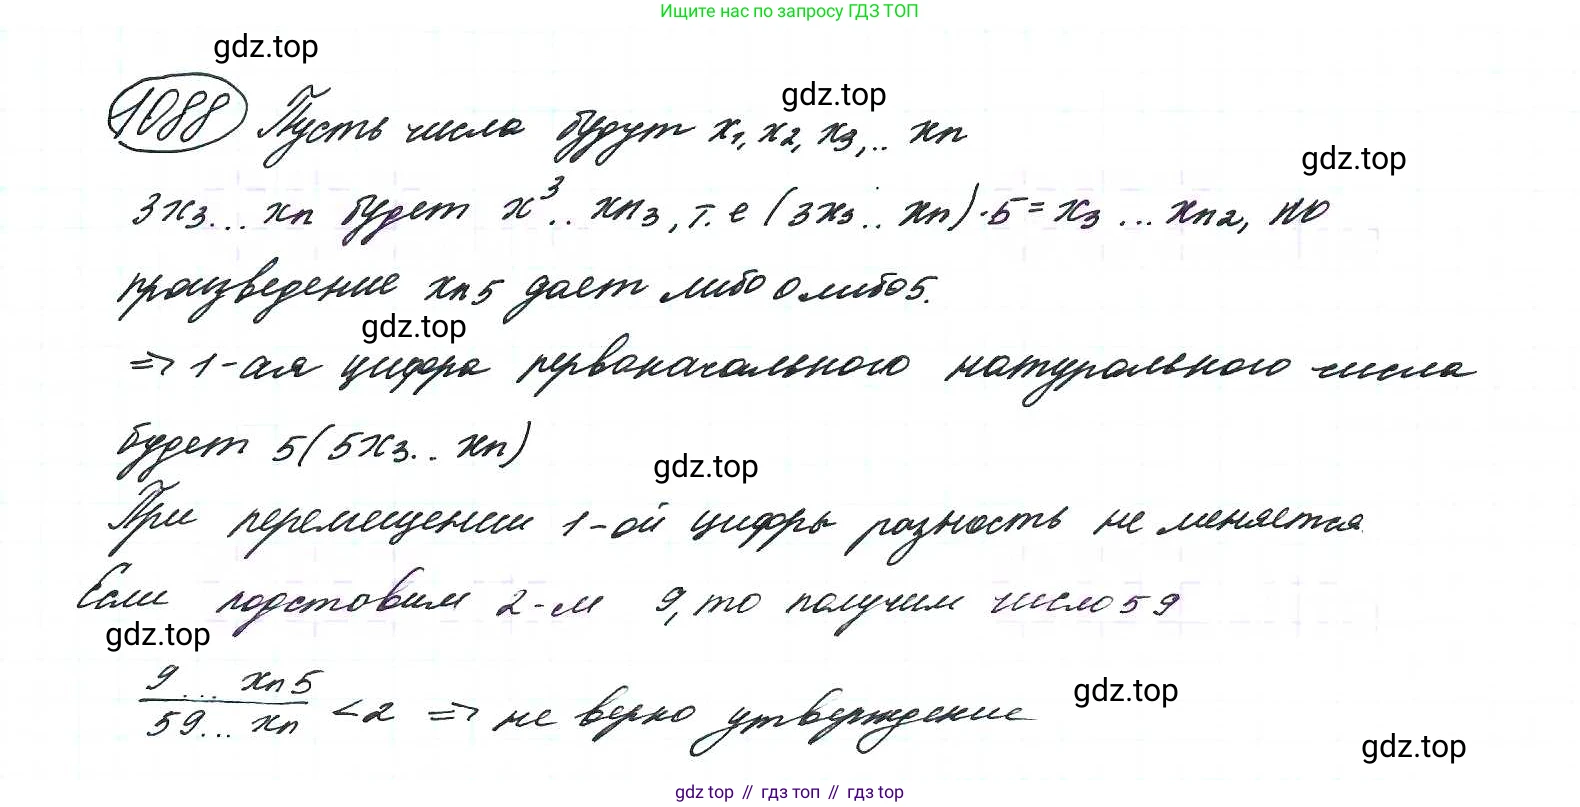 Ищите нас по запросу ГДЗ ТОП
gdz.top
1088 Пусть числа будут x₁, x₂, x₃,.. xn
gdz.top
gdz.top
3x₃... xn будет x³.. xn₃, т.е (3x₃.. xn)·5 = x₃ ... xn₂, но
произведение xn5 дает либо 0 либо 5.
gdz.top
=> 1-ая цифра первоначального натурального числа
будет 5(5x₃.. xn)
gdz.top
При перемещении 1-ой цифры разность не меняется
Если подставим 2-м 9, то получим число 59
gdz.top
9... xn5 / 59... xn < 2 => не верно утверждение
gdz.top
gdz.top
gdz top // гдз топ // гдз top